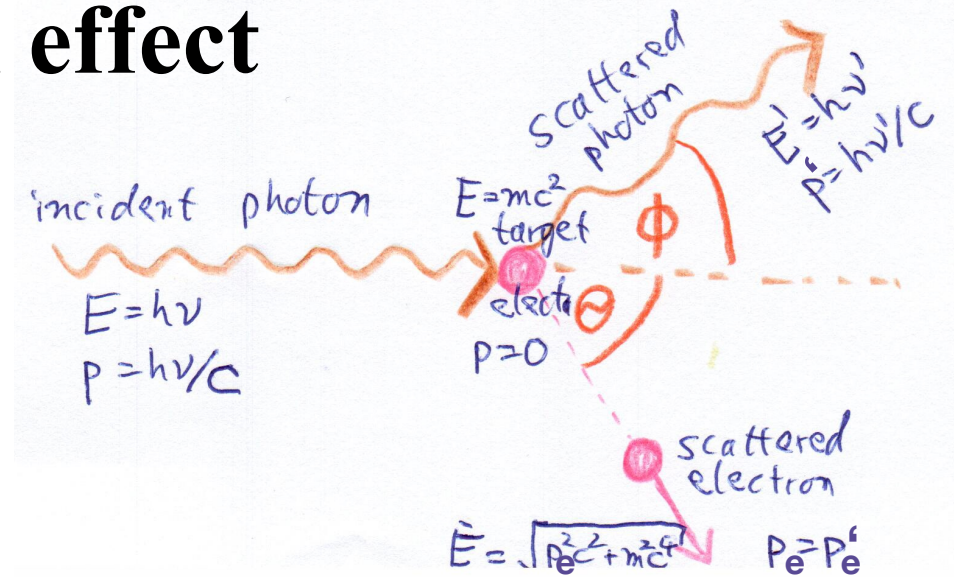 effect
incident photon
E=hν
p=hν/c
E=mc²
target
electr
p=0
scattered
photon
E'=hν'
p'=hν'/c
ϕ
Θ
scattered
electron
E'=√(pe²c²+m²c⁴)
Pe=Pe'